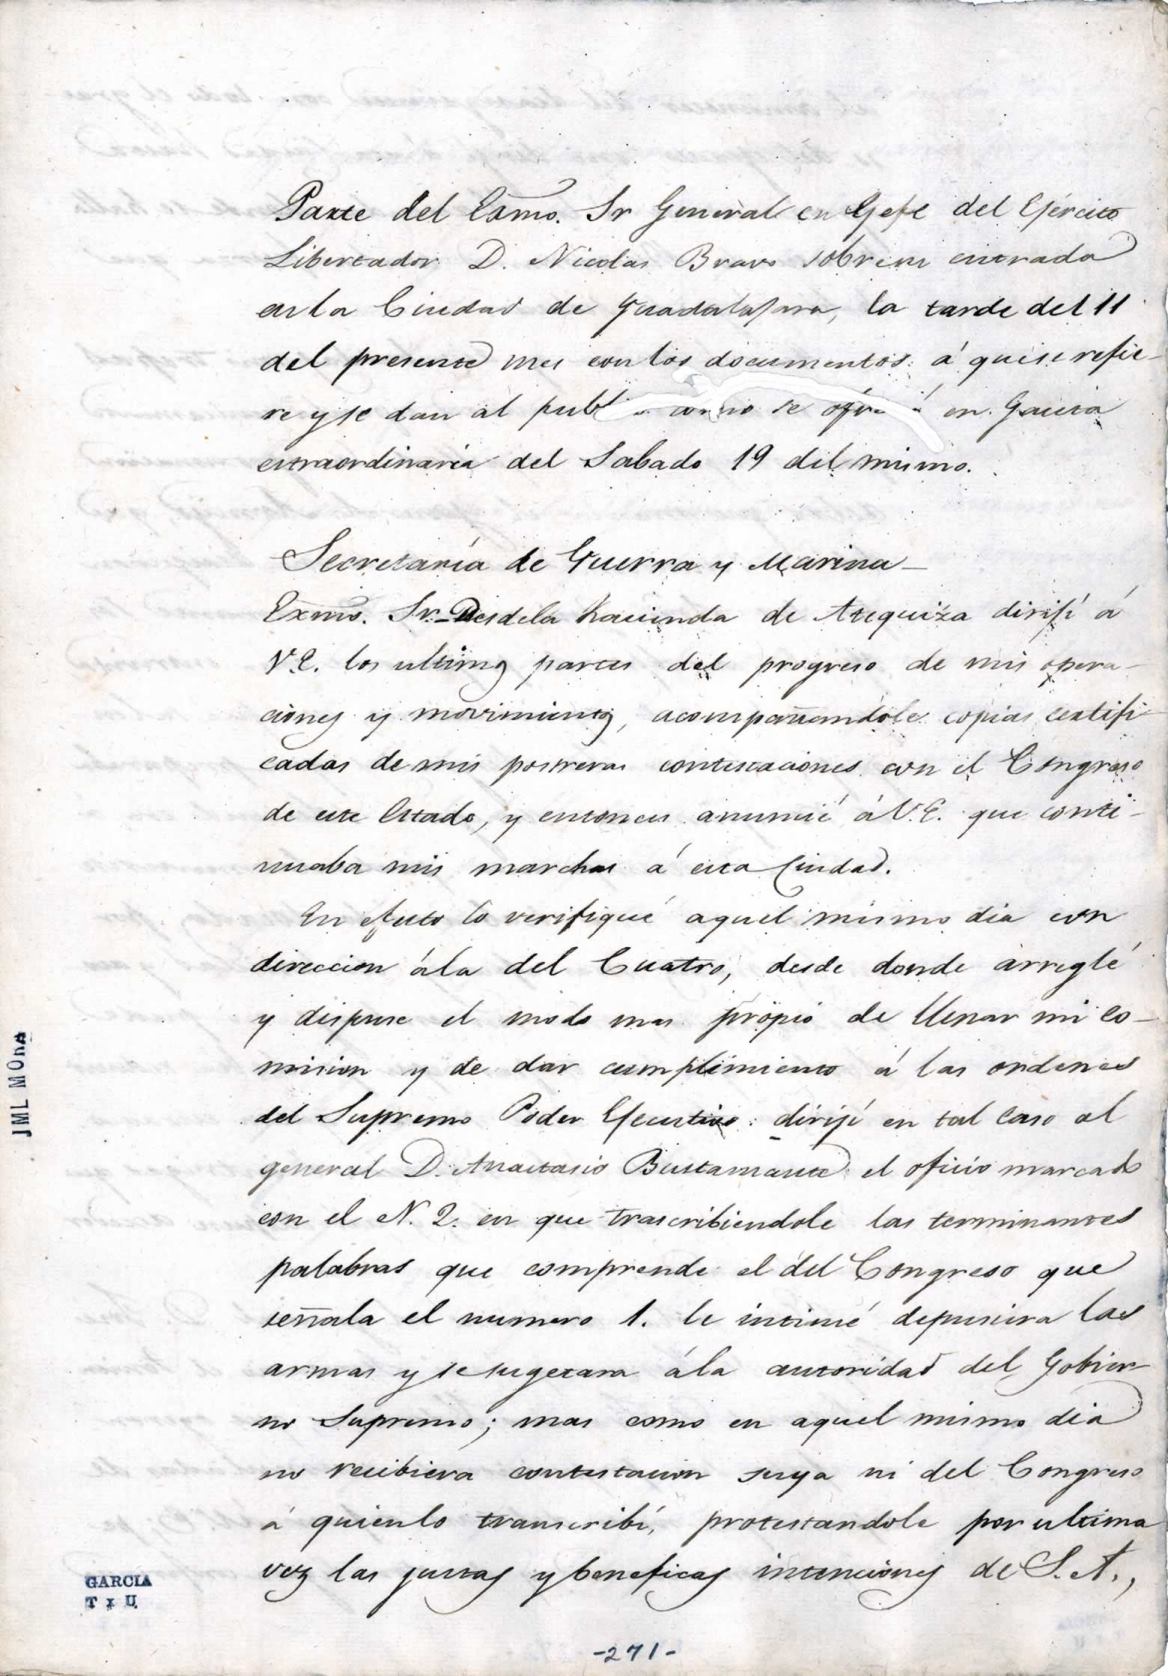 Parte del Exmo. Sr General en Gefe del Ejército
Libertador D. Nicolas Bravo sobre su entrada
en la Ciudad de Guadalajara, la tarde del 11
del presente mes con los documentos á que se refie-
re y se dan al publico como se ofreció en Gaceta
extraordinaria del Sabado 19 del mismo.
Secretaría de Guerra y Marina_
Exmo. Sr._Desde la hacienda de Atequiza dirijí á
V.E. los ultimos partes del progreso de mis opera-
ciones y movimientos, acompañandole copias certifi-
cadas de mis postreras contestaciones con el Congreso
de este Estado, y entonces anuncié á V.E. que conti-
nuaba mis marchas á esta Ciudad.
En efecto lo verifiqué aquel mismo dia con
direccion á la del Cuatro, desde donde arreglé
y dispuse el modo mas propio de llenar mi co-
mision y de dar cumplimiento á las ordenes
del Supremo Poder Ejecutivo: dirijí en tal caso al
general D. Anastasio Bustamante el oficio marcado
con el N. 2. en que trascribiendole las terminantes
palabras que comprende el del Congreso que
señala el numero 1. le intimé depusiera las
armas y se sugetara á la autoridad del Gobier-
no Supremo; mas como en aquel mismo dia
no recibiera contestacion suya ni del Congreso
á quien lo transcribí, protestandole por ultima
vez las justas y beneficas intenciones de S. A.,
JML MORA
GARCIA
T I II
-271-